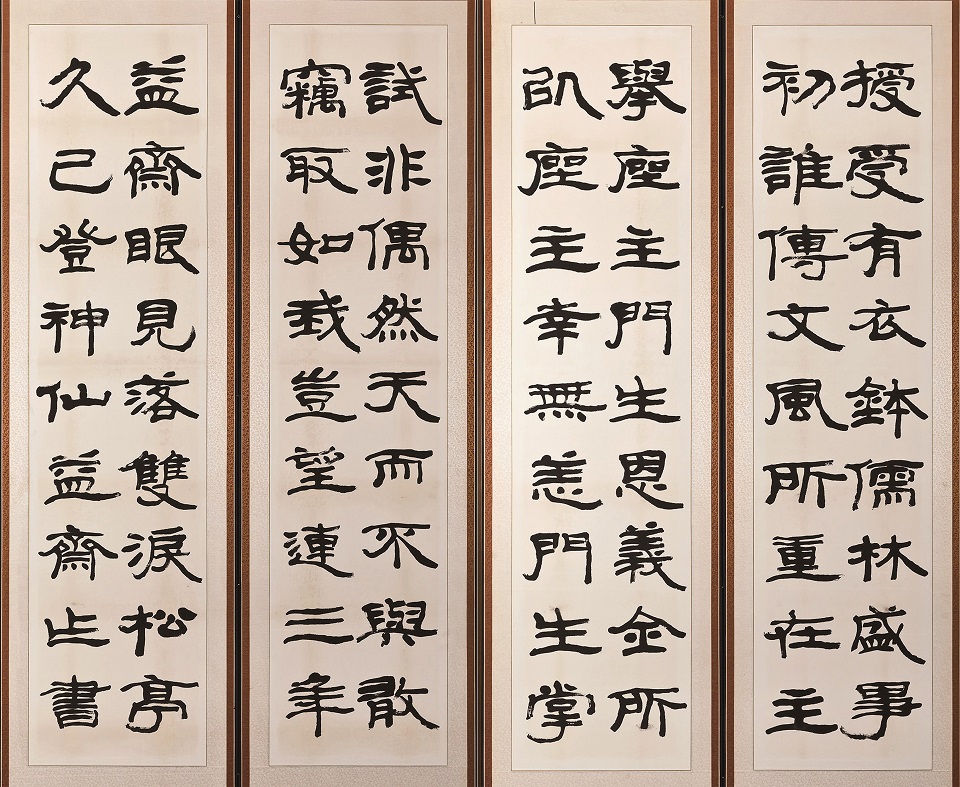 授受有衣鉢儒林盛事
初誰傳文風所重在主
擧座主門生恩義全所
以座主幸無恙門生掌
試非偶然天而不與敢
竊取如我豈望連三年
益齋眼見落雙淚松亭
久已登神仙益齋止書